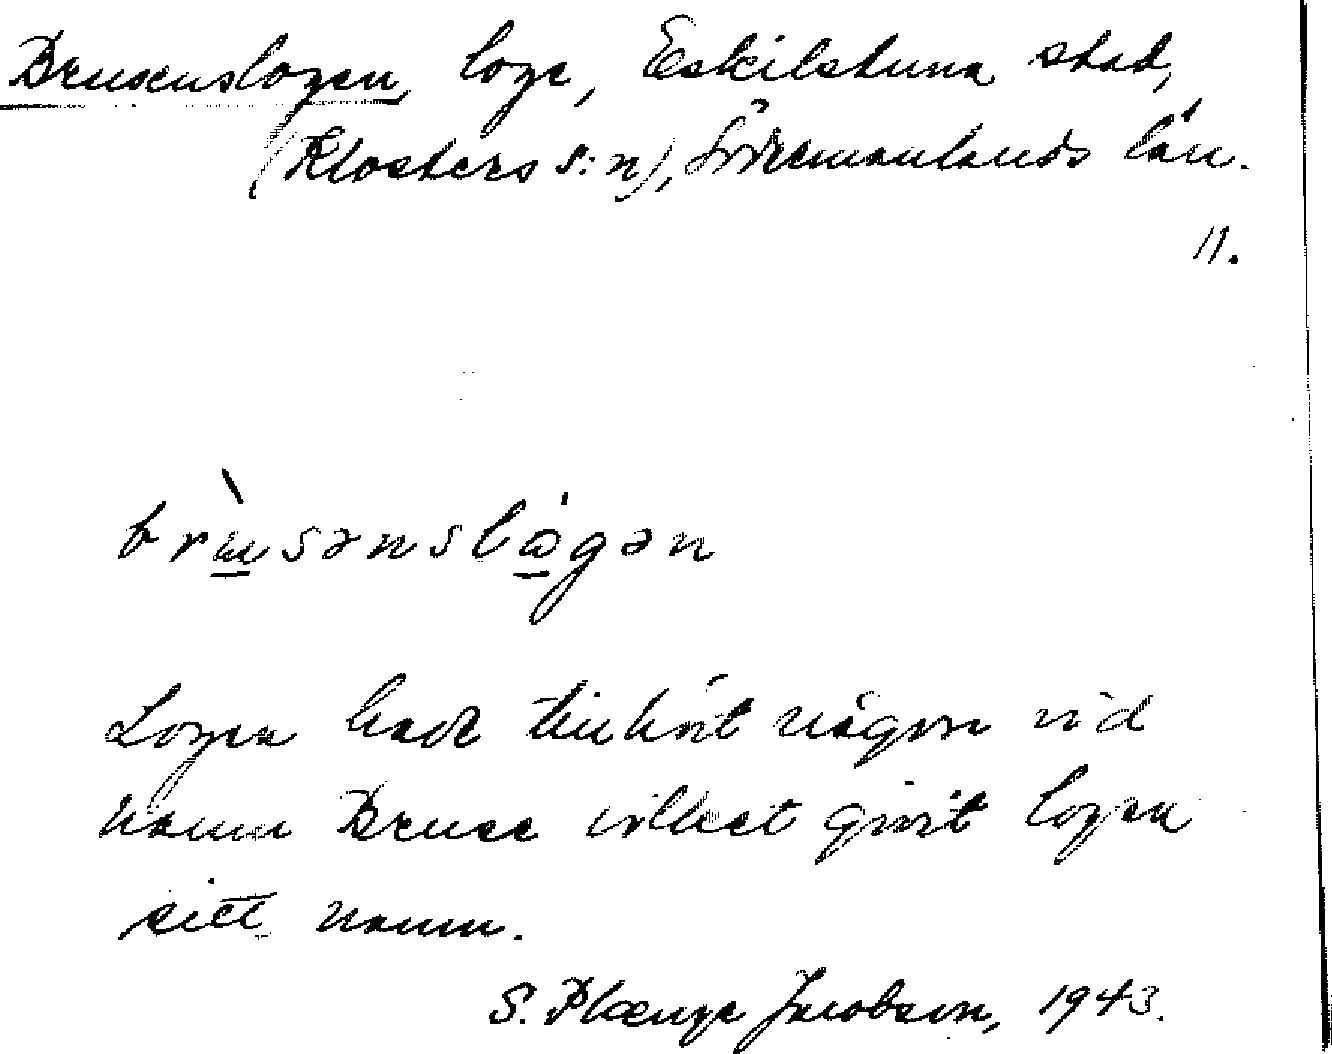 Brusenslogen, loge, Eskilstuna stad,
(Klosters s:n), Södermanlands län.
11.
brùsənslógən
Logen hade tillhört någon vid
namn Bruse vilket givit logen
sitt namn.
S. Plænge Jacobson, 1943.